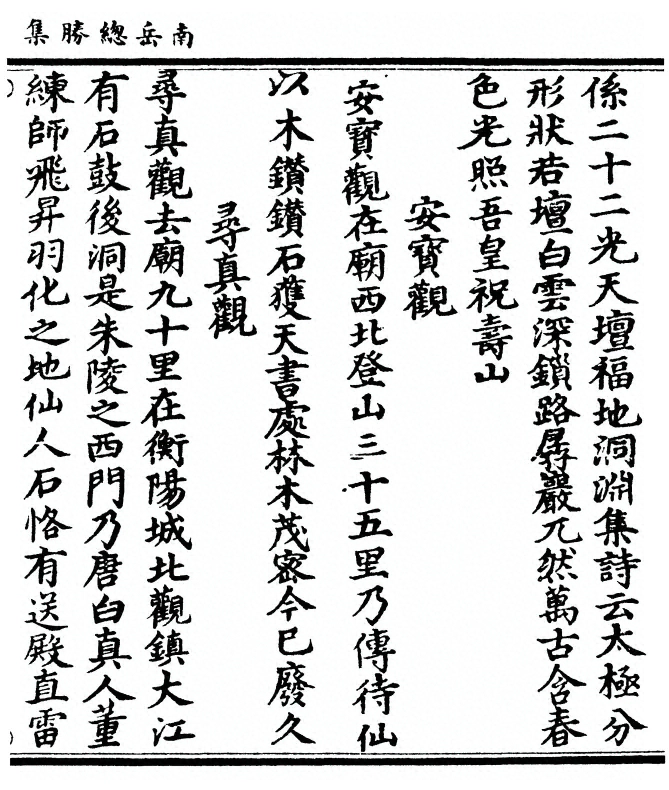 南岳總勝集
係二十二光天壇福地洞淵集詩云太極分
形狀若壇白雲深鎖路孱巖兀然萬古含春
色光照吾皇祝壽山
安寶觀
安寶觀在廟西北登山三十五里乃傳待仙
以木鑽鑽石獲天書處林木茂密今已廢久
尋真觀
尋真觀去廟九十里在衡陽城北觀鎮大江
有石鼓後洞是朱陵之西門乃唐白真人董
練師飛昇羽化之地仙人石恪有送殿直雷